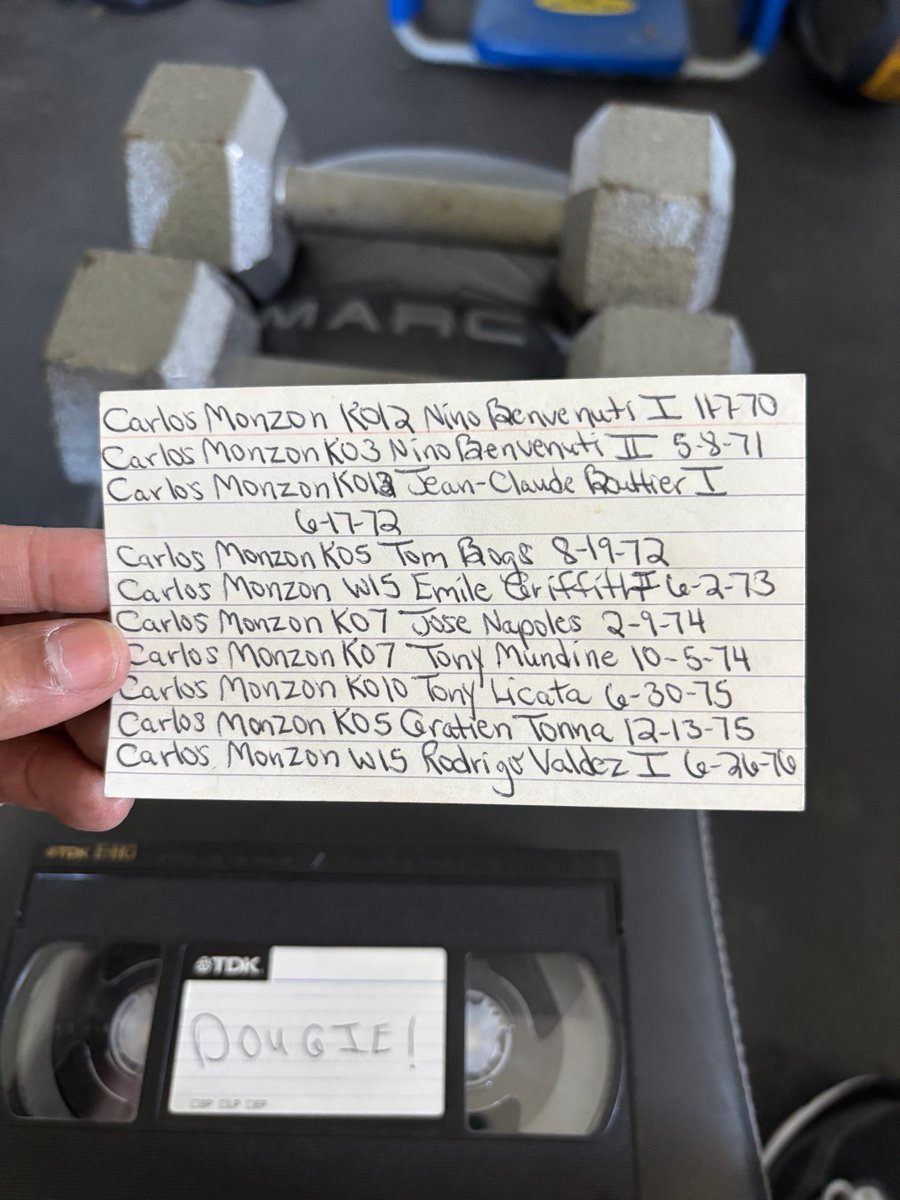 MARC
Carlos Monzon KO12 Nino Benvenuti I 11-7-70
Carlos Monzon KO3 Nino Benvenuti II 5-8-71
Carlos Monzon KO13 Jean-Claude Bouttier I
6-17-72
Carlos Monzon KO5 Tom Bogs 8-19-72
Carlos Monzon W15 Emile Griffith II 6-2-73
Carlos Monzon KO7 Jose Napoles 2-9-74
Carlos Monzon KO7 Tony Mundine 10-5-74
Carlos Monzon KO10 Tony Licata 6-30-75
Carlos Monzon KO5 Gratien Tonna 12-13-75
Carlos Monzon W15 Rodrigo Valdez I 6-26-76
TDK
TDK
DOUGIE!